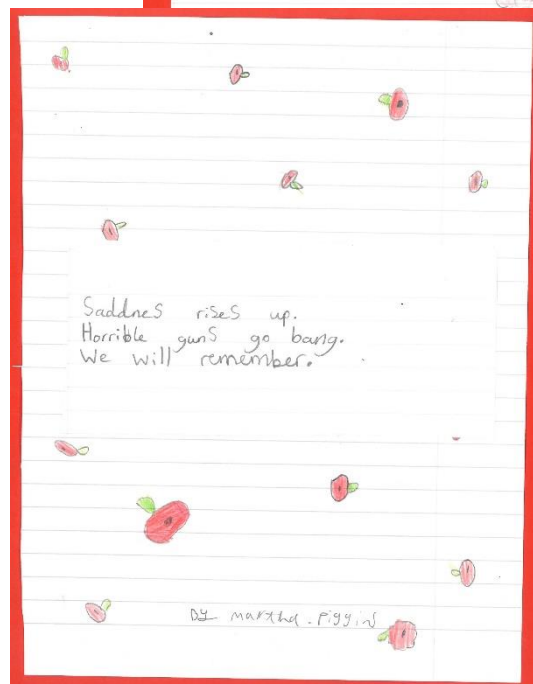 Saddnes rises up.
Horrible guns go bang.
We will remember.
by martha.piggins